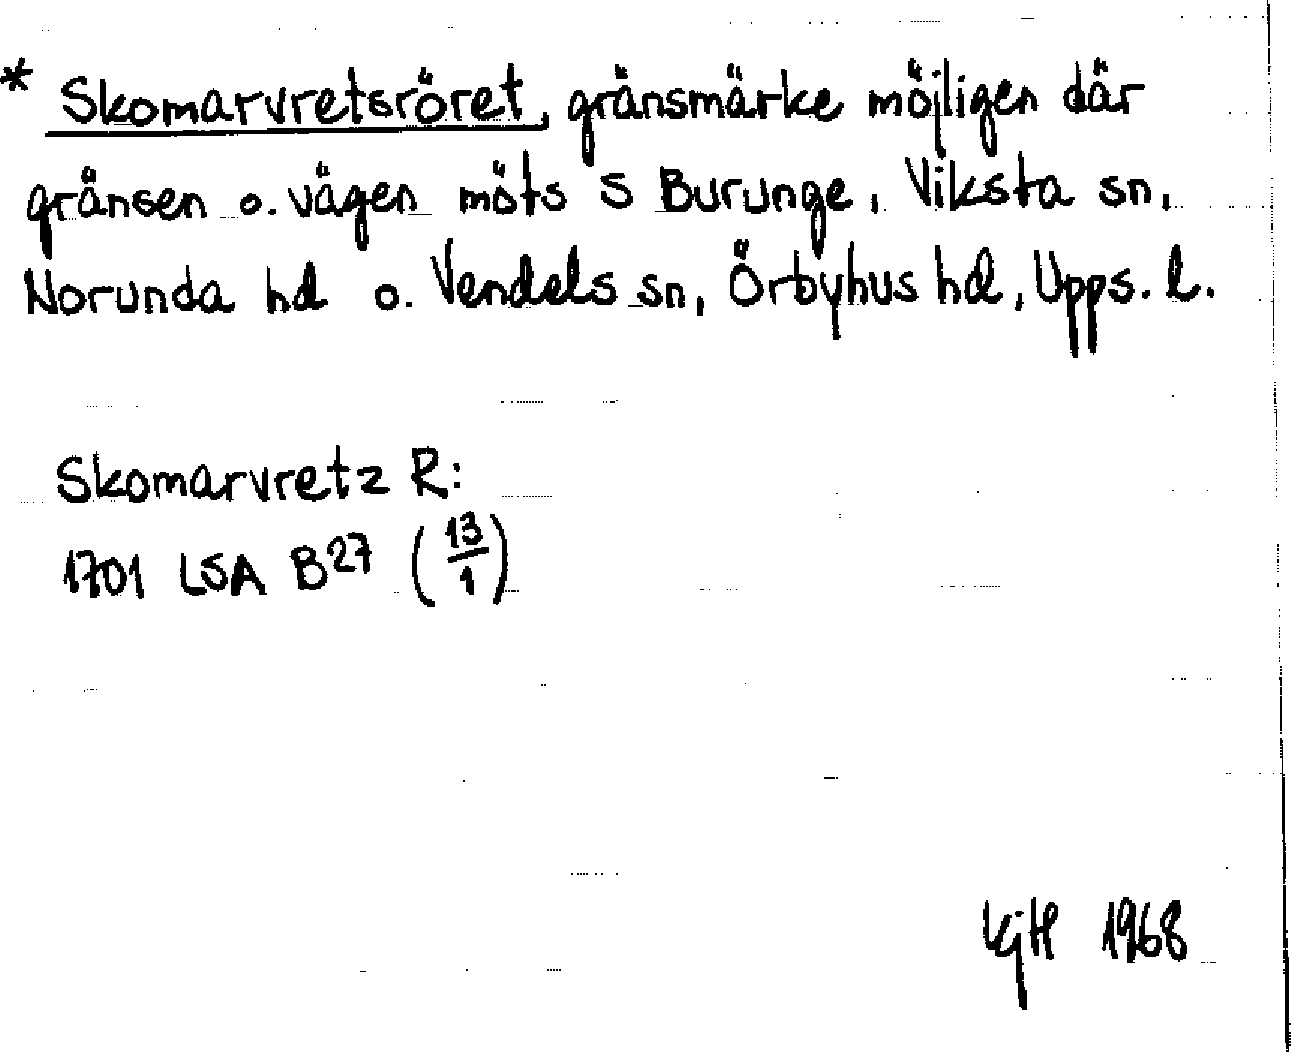 * Skomarvretsröret, gränsmärke möjligen där
gränsen o. vägen möts S Burunge, Viksta sn,
Norunda hd o. Vendels sn, Örbyhus hd, Upps. l.
Skomarvretz R:
1701 LSA B27 (13/1)
KjH 1968